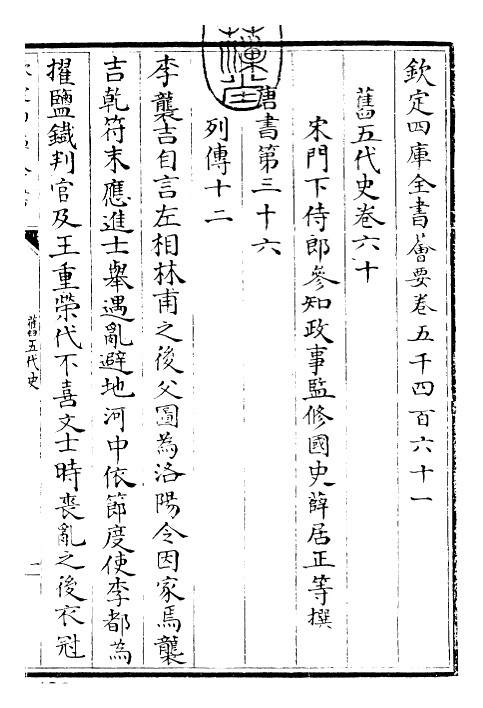 欽定四庫全書薈要卷五千四百六十一
舊五代史卷六十
宋門下侍郎參知政事監修國史薛居正等撰
唐書第三十六
列傳十二
李襲吉自言左相林甫之後父圖為洛陽令因家焉襲
吉乾符末應進士舉遇亂避地河中依節度使李都為
擢鹽鐵判官及王重榮代不喜文士時喪亂之後衣冠
舊五代史